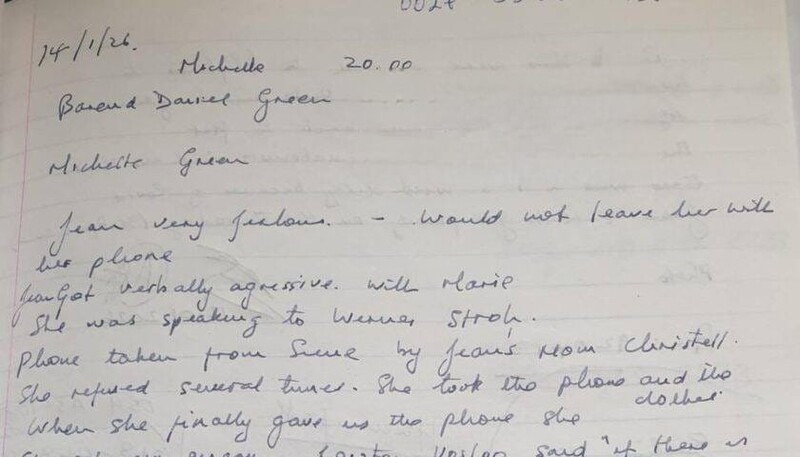 14/1/26.
Michelle 20.00
Barend Daniel Green
Michelle Green
Jean very jealous. - Would not leave her with
her phone
Jean Got verbally agressive. with Marie
She was speaking to Werner Stroh.
Phone taken from Scene by Jean's mom Christell.
She refused several times. She took the phone and the
clothes
When she finally gave us the phone she
said "if there is